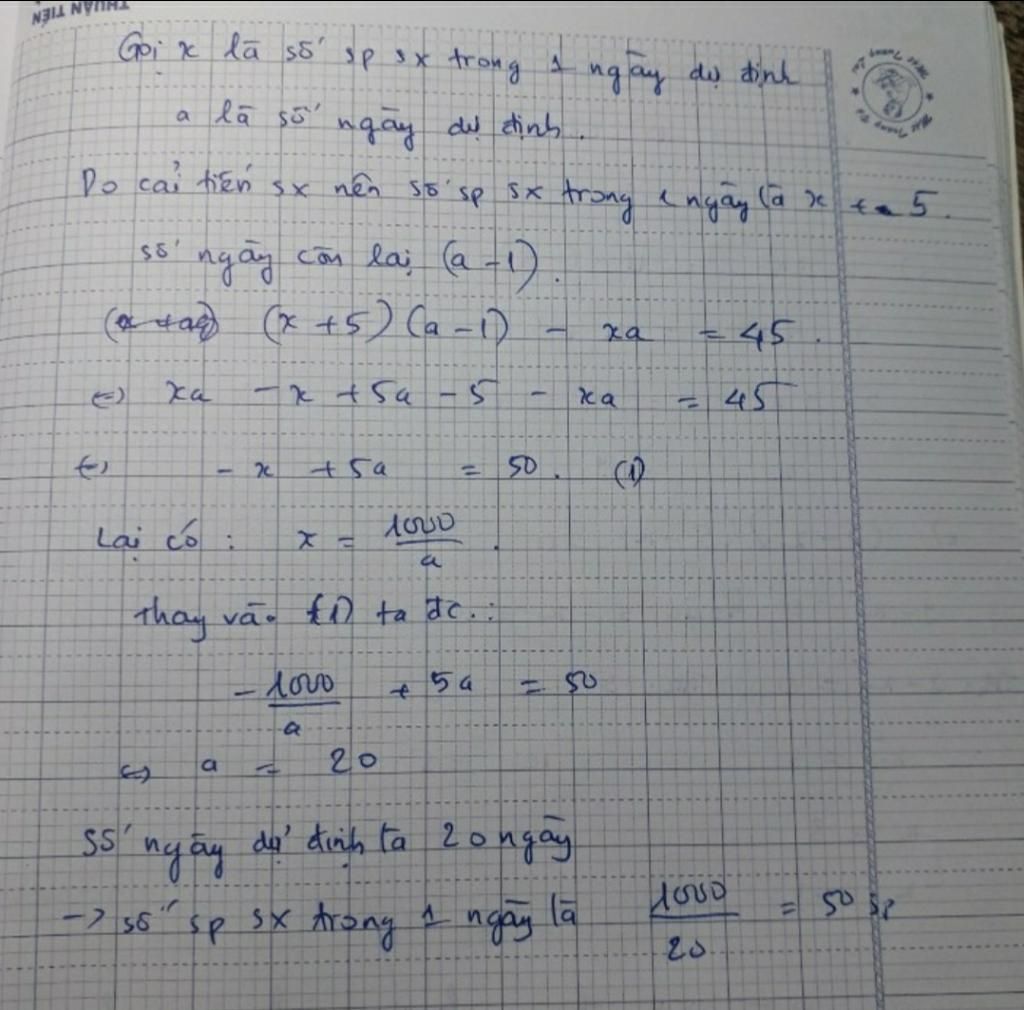 THUẬN TIẾN
Gọi x là số sp sx trong 1 ngày dự định
a là số ngày dự định.
Do cải tiến sx nên số sp sx trong 1 ngày là x + 5.
số ngày còn lại (a - 1).
(x + 5)(a - 1) - xa = 45.
<=> xa - x + 5a - 5 - xa = 45
<=> - x + 5a = 50. (1)
Lại có : x = 1000/a.
thay vào (1) ta đc.:
- 1000/a + 5a = 50
<=> a = 20
Số ngày dự định là 20 ngày
-> số sp sx trong 1 ngày là 1000/20 = 50 sp